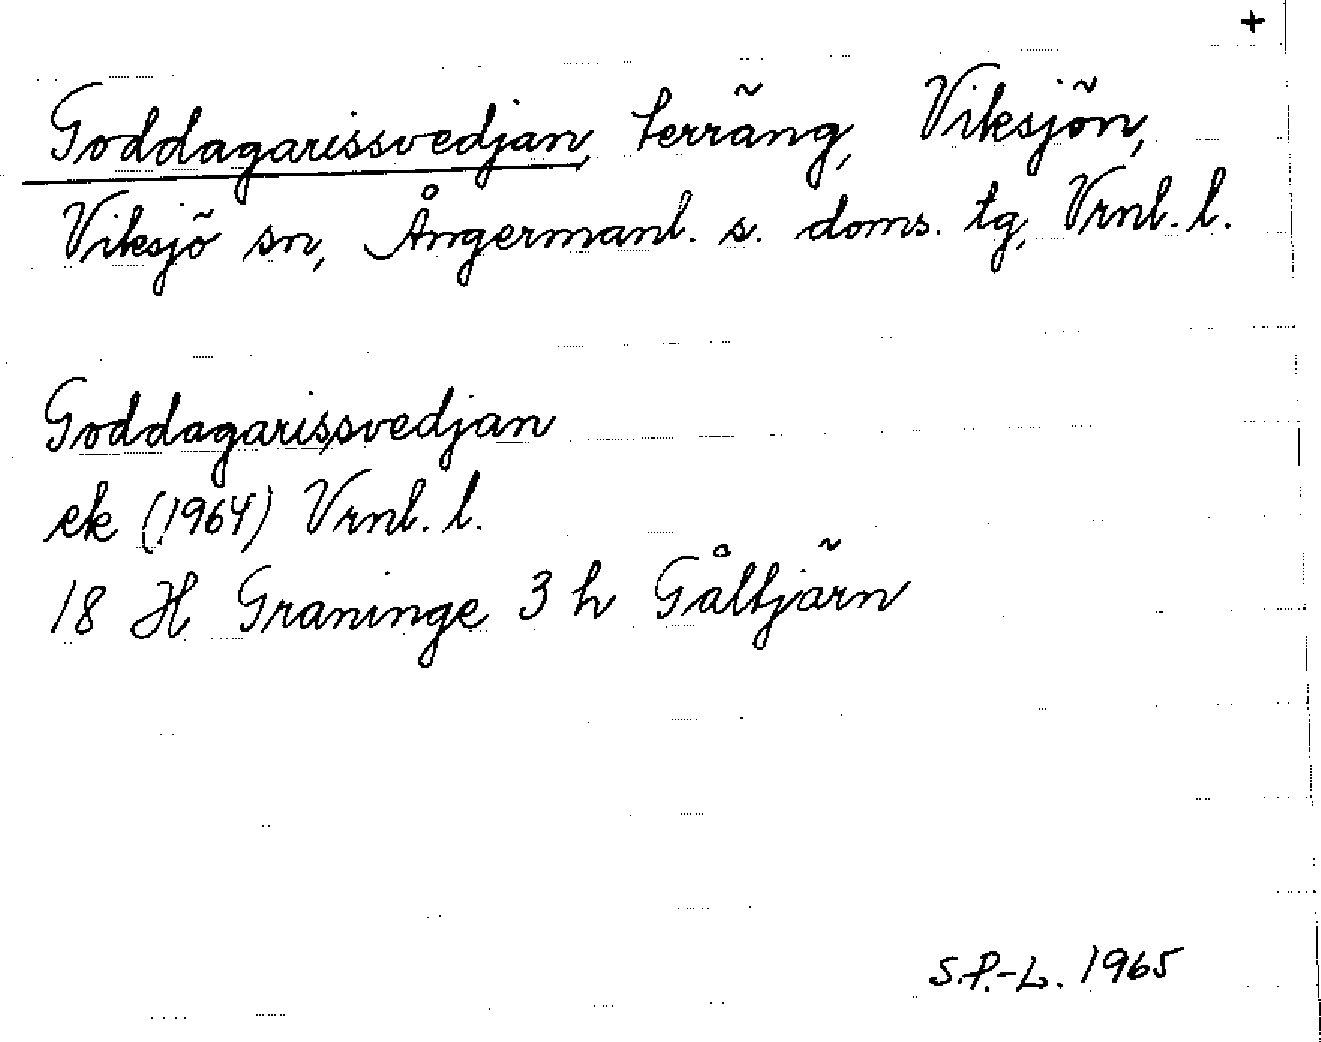 +
Goddagarissvedjan, terräng, Viksjön,
Viksjö sn, Ångermanl. s. doms. tg, Vrnl. l.
Goddagarissvedjan
ek (1964) Vrnl. l.
18 H Graninge 3 h Gåltjärn
S.P.-L. 1965